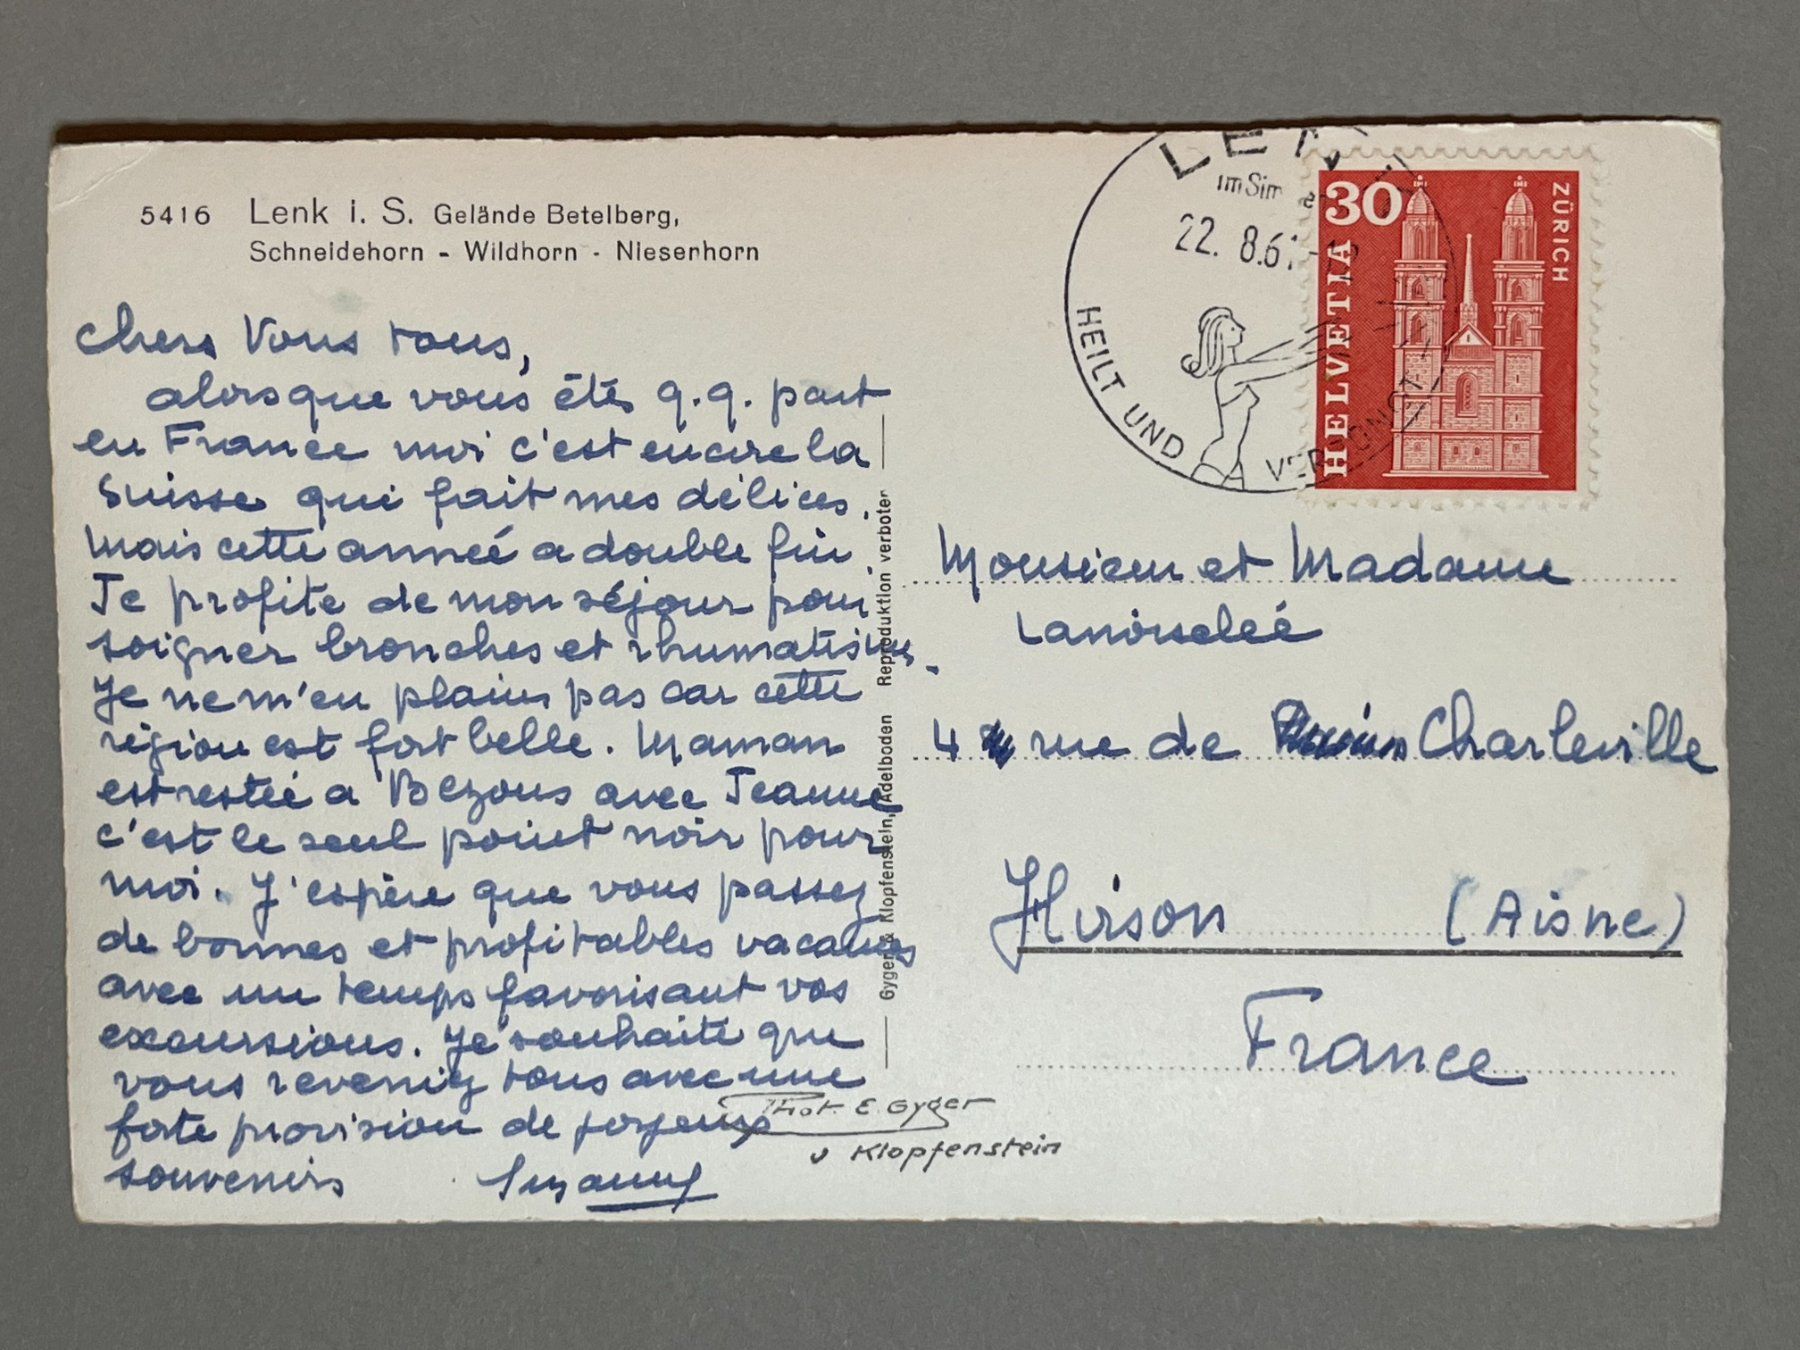 5416 Lenk i. S. Gelände Betelberg,
Schneidehorn - Wildhorn - Nieserhorn
Chers Vous tous,
alors que vous étés q.q. part
en France moi c'est encore la
Suisse qui fait mes délices.
Mais cette année a double fin.
Je profite de mon séjour pour
soigner bronches et rhumatismes.
Je ne m'en plains pas car cette
région est fort belle. Maman
est restée a Bezons avec Jeanne
c'est le seul point noir pour
moi. J'espère que vous passez
de bonnes et profitables vacances
avec un temps favorisant vos
excursions. Je souhaite que
vous reveniez tous avec une
forte provision de joyeux
souvenirs Suzanne
Gyger & Klopfenstein, Adelboden Reproduktion verboten
Phot. E. Gyger
Klopfenstein
LEN
im Sim
22. 8.6
HEILT UND VERJÜNGT
30
HELVETIA
ZÜRICH
Monsieur et Madame
4 rue de Charleville
Hirson (Aisne)
France